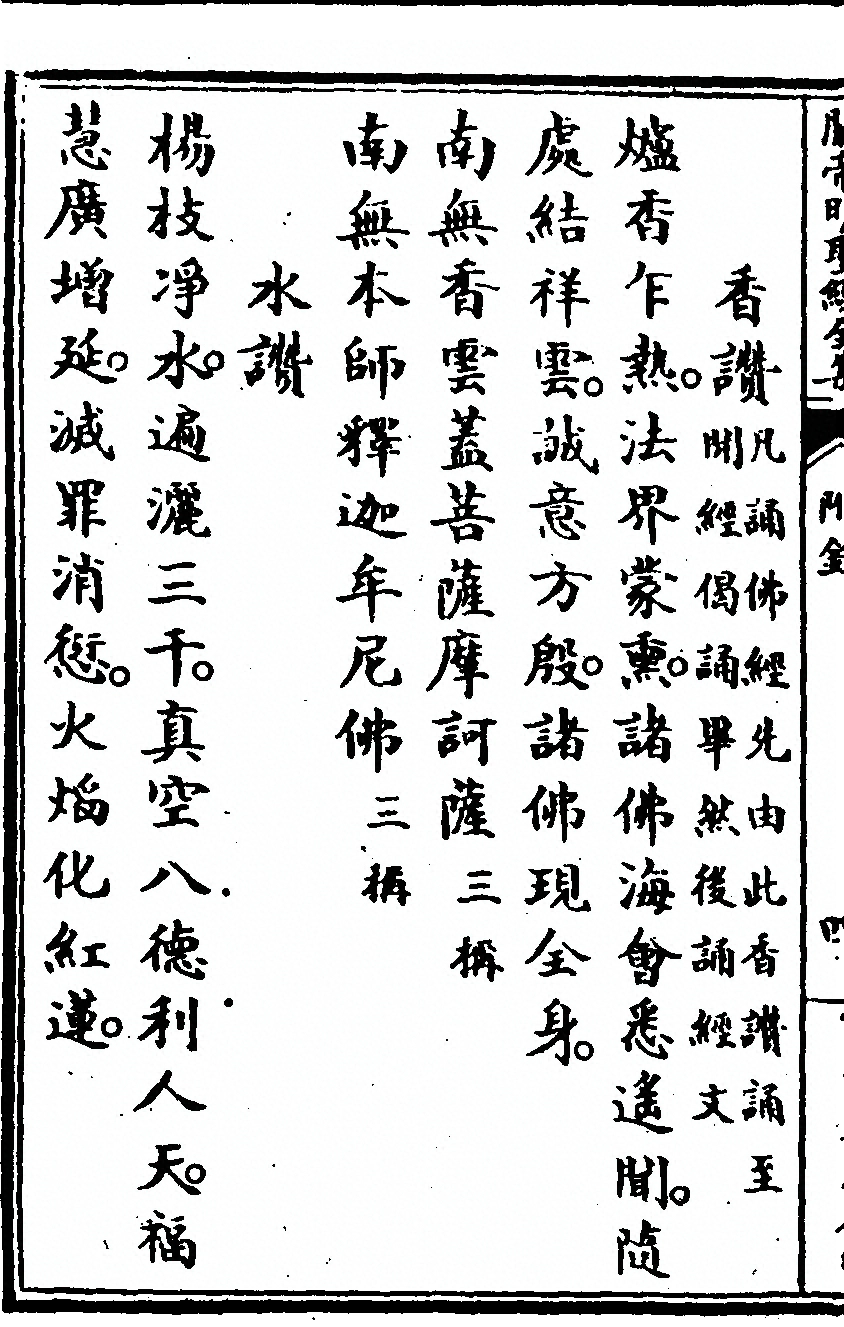 香讚凡誦佛經先由此香讚誦至
開經偈誦畢然後誦經文
爐香乍熱。法界蒙熏。諸佛海會悉遙聞。隨
處結祥雲。誠意方殷。諸佛現全身。
南無香雲蓋菩薩摩訶薩三稱
南無本師釋迦牟尼佛三稱
水讚
楊枝凈水。遍灑三千。真空八德利人天。福
慧廣增延。滅罪消愆。火焰化紅蓮。